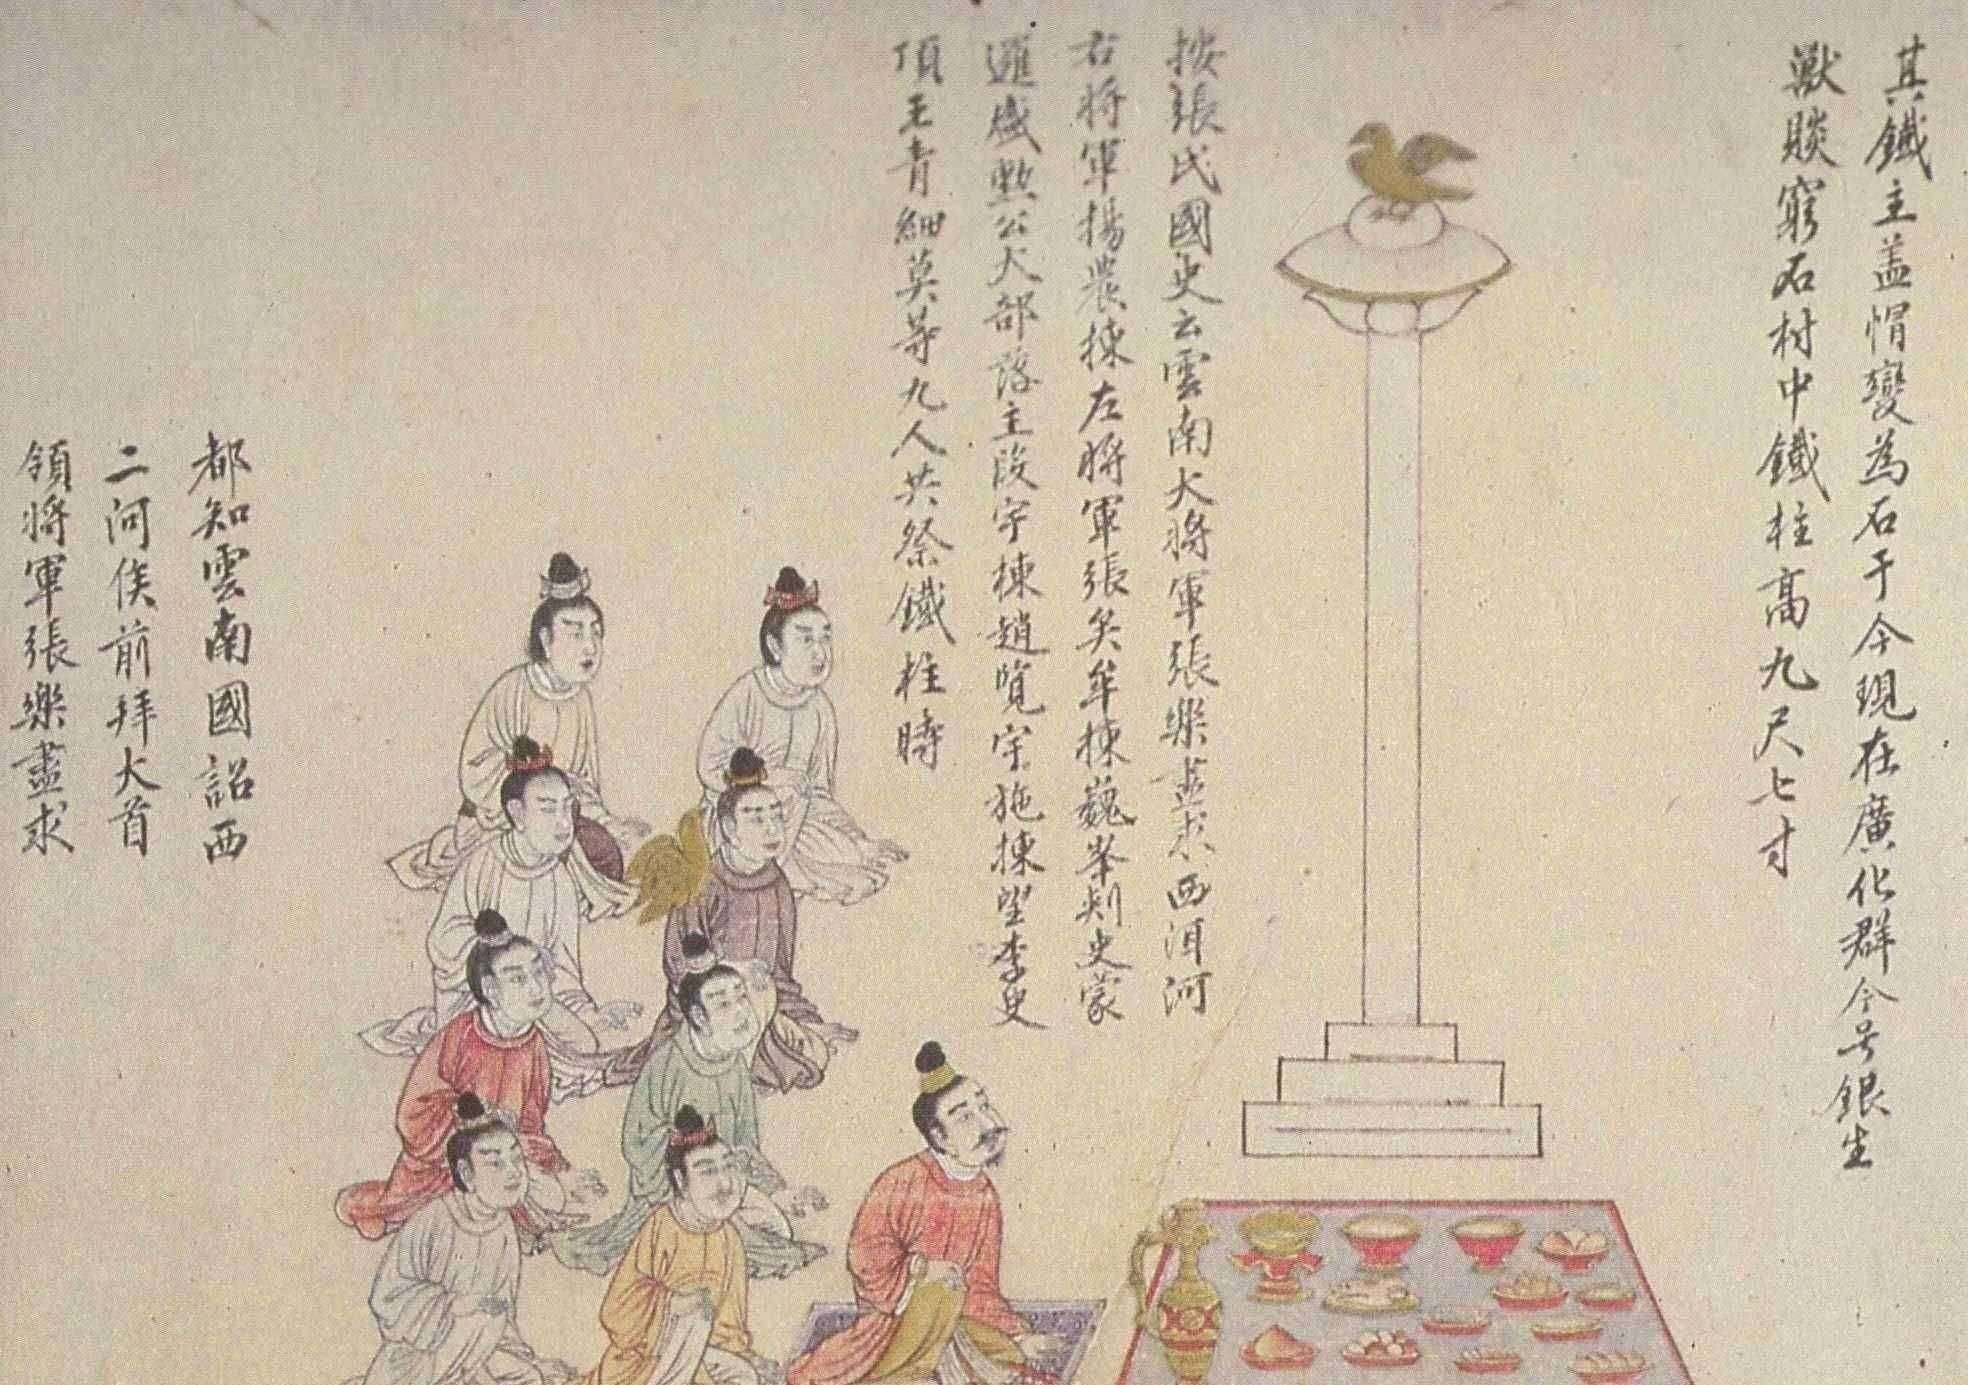 其鐵主盖帽變為石于今現在廣化群今号銀生
獸賧窮石村中鐵柱高九尺七寸
按張氏國史云雲南大將軍張樂盡求西洱河
右將軍揚農棟左將軍張矣牟棟巍峯刾史蒙
邏盛勲公大部落主段宇棟趙覽宇施棟望李史
頂王青細莫等九人共祭鐵柱時
都知雲南國詔西
二河侯前拜大首
領將軍張樂盡求